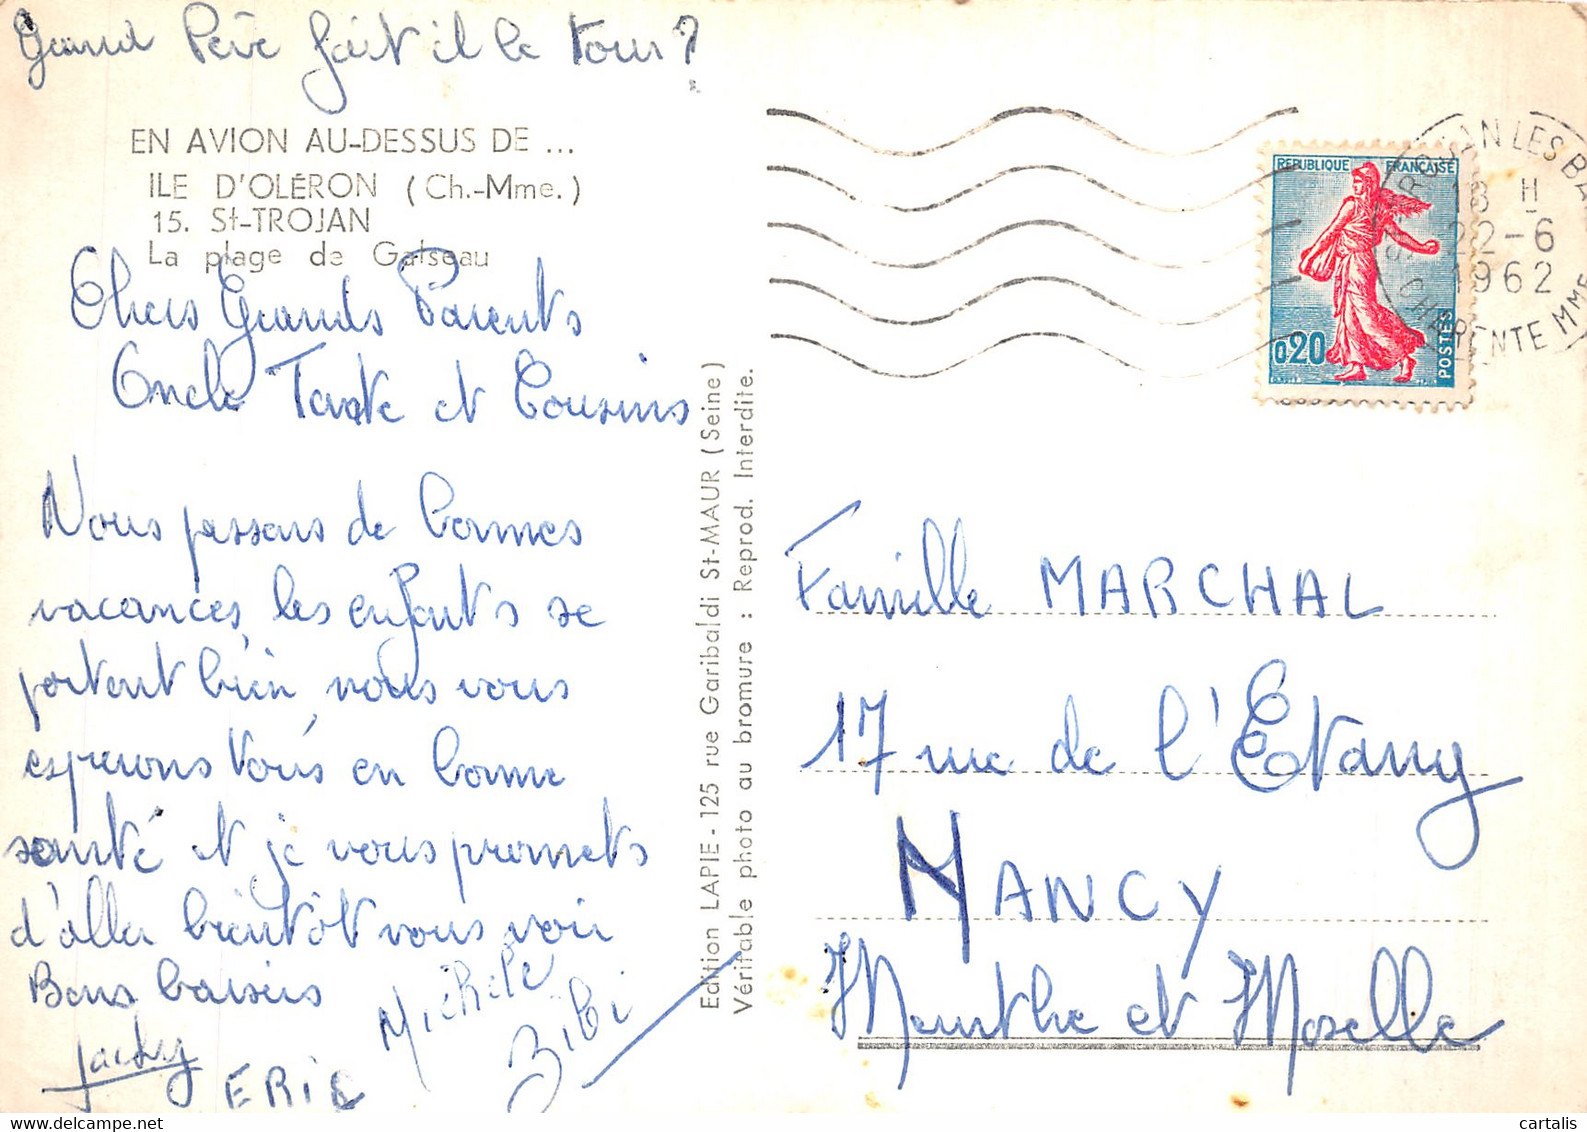 Grand Père fait il le tour ?
EN AVION AU-DESSUS DE ...
ILE D'OLÉRON (Ch.-Mme.)
15. St-TROJAN
La plage de Gatseau
Chers Grands Parents
Oncle Tante et Cousins
Nous passons de bonnes
vacances, les enfants se
portent bien, nous vous
esperons tous en bonne
santé et je vous promets
d'aller bientôt vous voir
Bons baisers
Jacky
ERIC
Michele
Bibi
Edition LAPIE - 125 rue Garibaldi St-MAUR (Seine)
Véritable photo au bromure : Reprod. Interdite.
REPUBLIQUE FRANÇAISE
0,20
POSTES
ST TROJAN LES BA
18 H
22-6
1962
CHARENTE MME
Famille MARCHAL
17 rue de l'Etang
NANCY
Meurthe et Moselle
cartalis